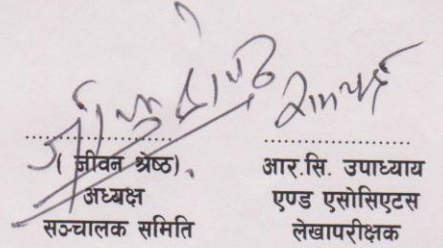 .............................
( जीवन श्रेष्ठ)
अध्यक्ष
सञ्चालक समिति
.............................
आर.सि. उपाध्याय
एण्ड एसोसिएटस
लेखापरीक्षक